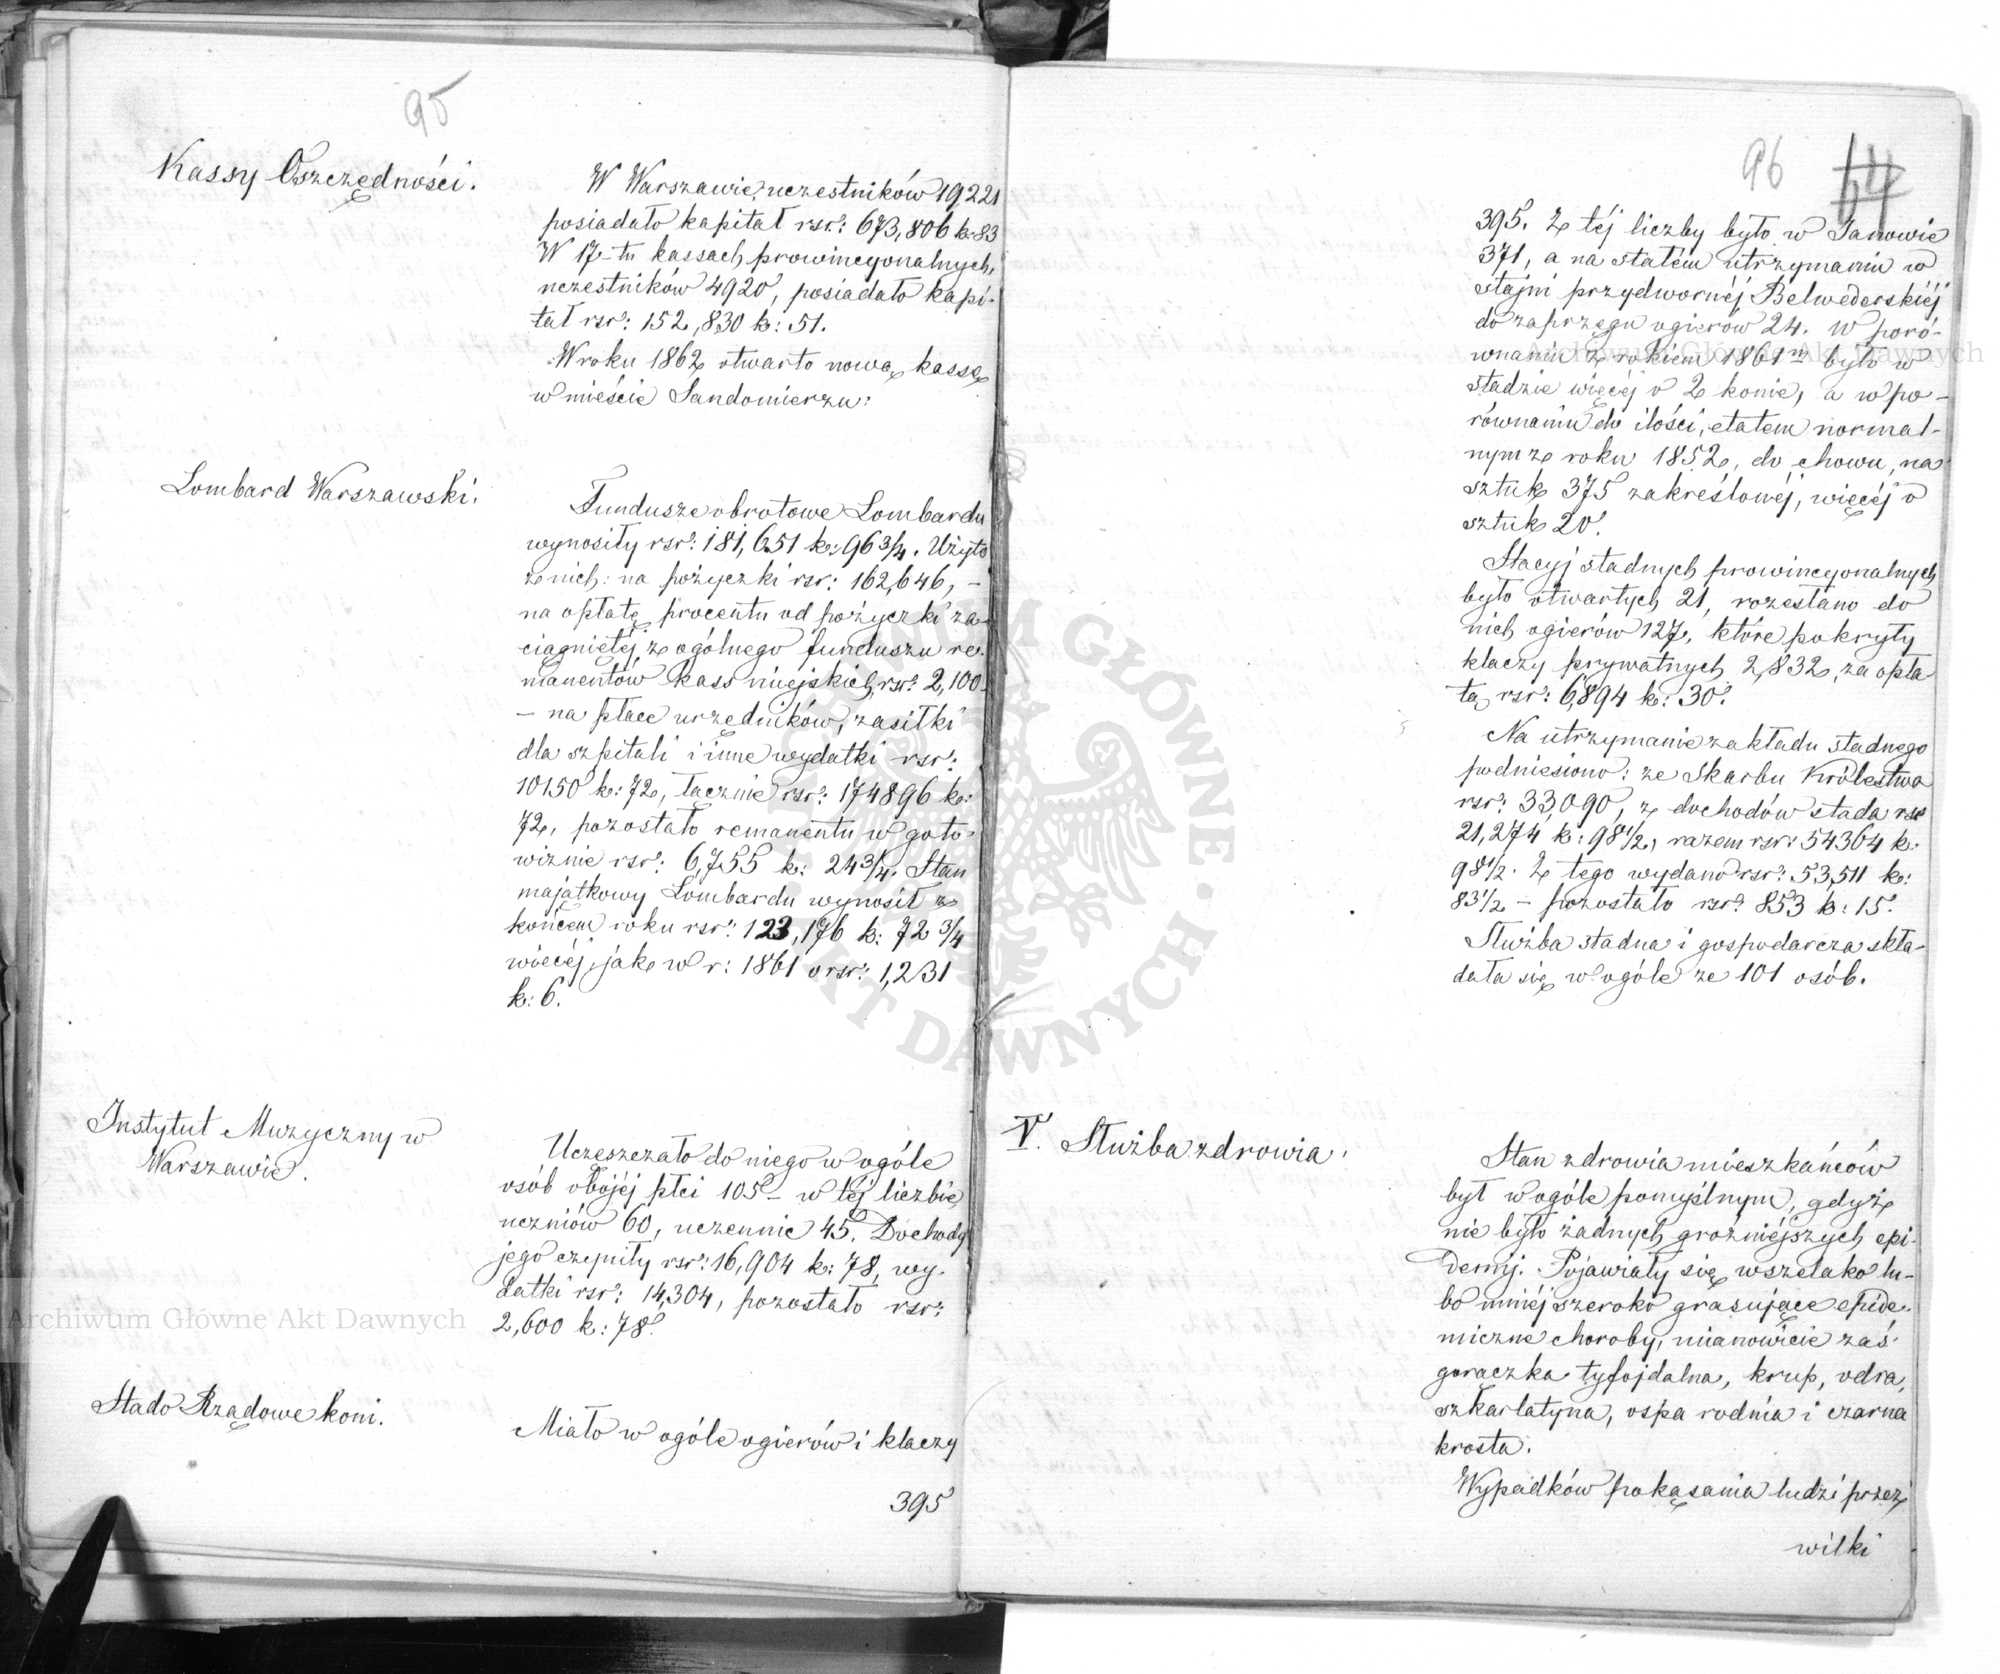 95
Kassy Oszczędności.
W Warszawie, uczestników 19,221
posiadało kapitał rsr: 673,806 k: 83
W 17-tu kassach prowincyonalnych,
uczestników 4920, posiadało kapi-
tał rsr: 152,830 k: 51.
W roku 1862 otwarto nową kassę
w mieście Sandomierzu.
Lombard Warszawski.
Fundusze obrotowe Lombardu
wynosiły rsr: 181,651 k: 96 3/4. Użyto
z nich: na pożyczki rsr: 162,646, –
na opłatę procentu od pożyczki za-
ciągniętéj z ogólnego funduszu re-
manentów kass miejskich rsr: 2,100
– na płace urzędników, zasiłki
dla szpitali i inne wydatki rsr:
10150 k: 72, łącznie rsr: 174896 k:
72, pozostało remanentu w goto-
wiznie rsr: 6,755 k: 24 3/4. Stan
majątkowy Lombardu wynosił z
końcem roku rsr: 123,176 k: 72 3/4
więcéj, jak w r: 1861 o rsr: 1,231
k: 6.
Instytut Muzyczny w
Warszawie.
Uczęszczało do niego w ogóle
osób obojéj płci 105 – w téj liczbie
uczniów 60, uczennic 45. Dochody
jego czyniły rsr: 16,904 k: 78, wy-
datki rsr: 14,304, pozostało rsr:
2,600 k: 78.
Stado Rządowe koni.
Miało w ogóle ogierów i klaczy
395
96
64
395. Z téj liczby było w Janowie
371, a na stałém utrzymaniu w
stajni przydwornéj Belwederskiéj
do zaprzęgu ogierów 24. W poró-
wnaniu z rokiem 1861m było w
stadzie więcéj o 2 konie, a w po-
równaniu do ilości, etatem normal-
nym z roku 1852, do chowu, na
sztuk 375 zakreślonéj, więcéj o
sztuk 20.
Stacyj stadnych prowincyonalnych
było otwartych 21, rozesłano do
nich ogierów 127, które pokryły
klaczy prywatnych 2,832, za opła-
tą rsr: 6,894 k: 30.
Na utrzymanie zakładu stadnego
podniesiono: ze Skarbu Królestwa
rsr: 33,090, z dochodów stada rsr
21,274 k: 98 1/2, razem rsr: 54364 k:
98 1/2. Z tego wydano rsr: 53,511 k:
83 1/2 – pozostało rsr: 853 k: 15.
Służba stadna i gospodarcza skła-
dała się w ogóle ze 101 osób.
V. Służba zdrowia.
Stan zdrowia mieszkańców
był w ogóle pomyślnym, gdyż
nie było żadnych groźniéjszych epi-
demij. Pojawiały się wszelako lu-
bo mniéj szeroko grasujące epide-
miczne choroby, mianowicie zaś
gorączka tyfojdalna, krup, odra,
szkarlatyna, ospa rodnia i czarna
krosta.
Wypadków pokąsania ludzi przez
wilki
Archiwum Główne Akt Dawnych
Archiwum Główne Akt Dawnych
ARCHIWUM GŁÓWNE AKT DAWNYCH